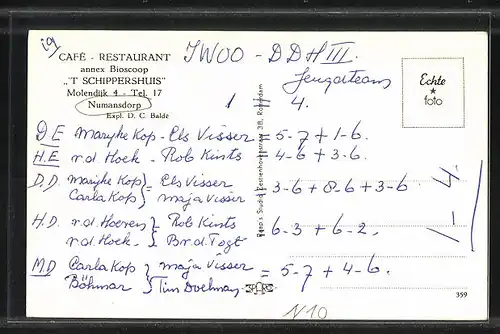 CAFÉ - RESTAURANT
annex Bioscoop
„'T SCHIPPERSHUIS"
Molendijk 4 - Tel. 17
Numansdorp
Expl. D. C. Balde
IWOO - DDH III.
Jeugdteams
1 = 4.
Echte
★
foto
D E Marijke Kop - Els Visser = 5-7 + 1-6.
H.E v.d. Hoek - Rob Kints = 4-6 + 3-6.
D.D. Marijke Kop } = Els Visser
Carla Kop } Maja Visser 3-6 + 8-6 + 3-6
H.D. v.d. Hoeven } Rob Kints
v.d. Hoek } 6-3 + 6-2.
M D Carla Kop } Maja Visser = 5-7 + 4-6.
Böhmar } Tim
1 - 4.
359
N10